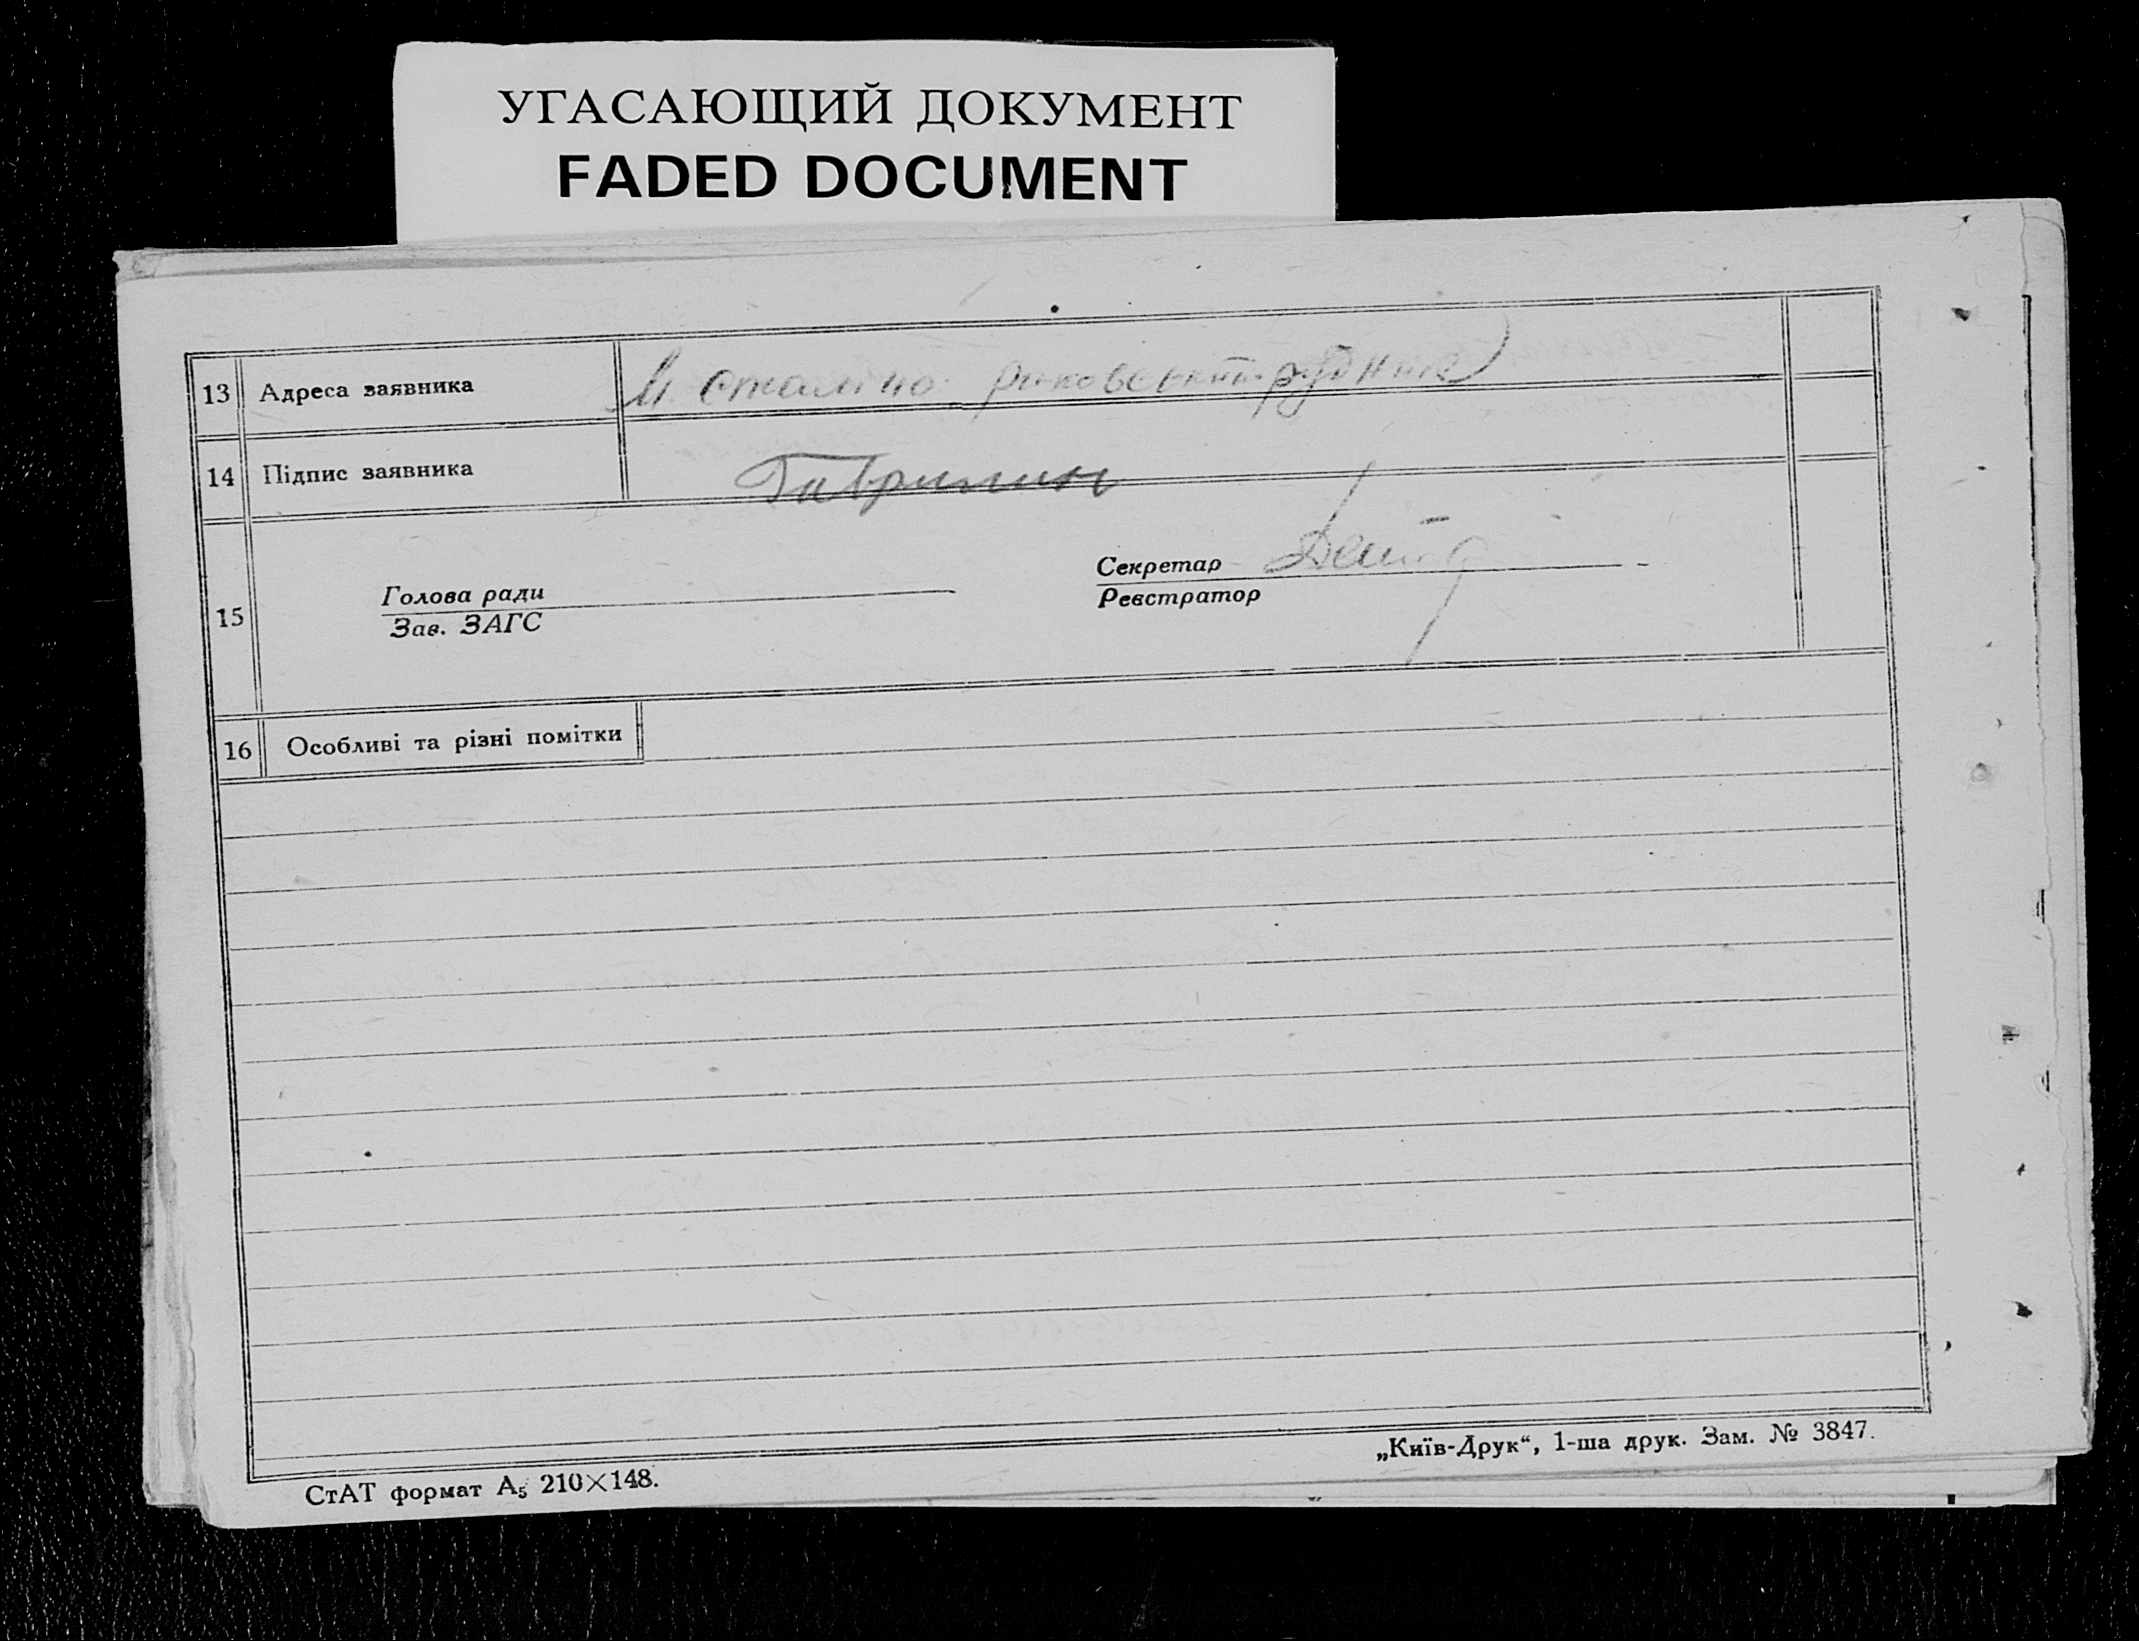 УГАСАЮЩИЙ ДОКУМЕНТ
FADED DOCUMENT
13 Адреса заявника М Сталіно риковский рудник
14 Підпис заявника Гаврилин
Секретар
Голова ради
Реєстратор
15
Зав. ЗАГС
16 Особливі та різні помітки
СтАТ формат А₅ 210×148.
„Київ-Друк“, 1-ша друк. Зам. № 3847.